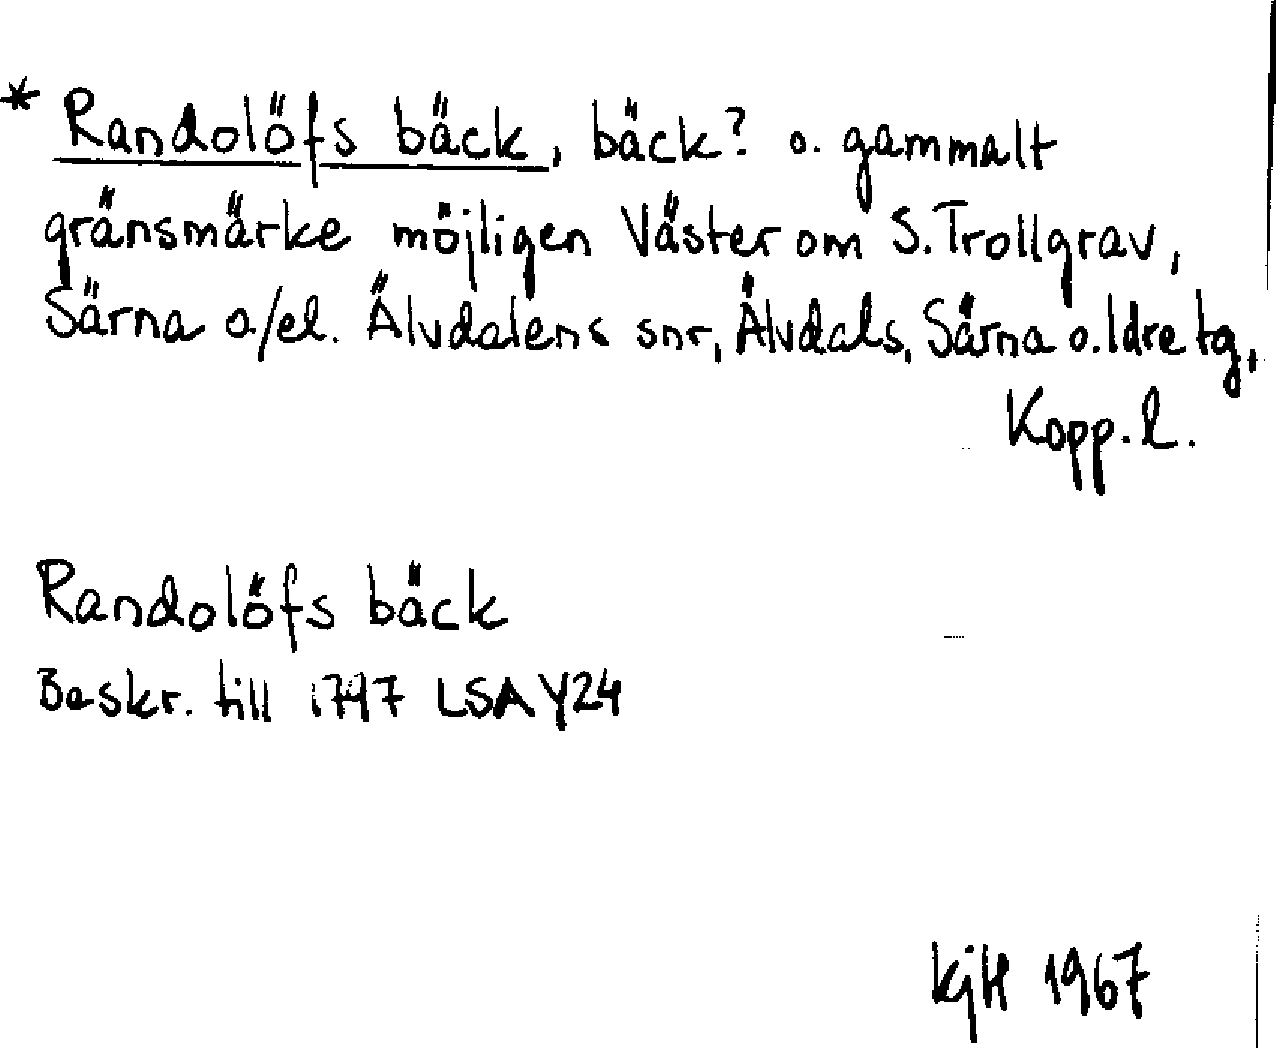 * Randolöfs bäck, bäck? o. gammalt
gränsmärke möjligen Väster om S. Trollgrav,
Särna o/el. Älvdalens snr, Älvdals, Särna o. Idre tg,
Kopp. l.
Randolöfs bäck
Beskr. till 1797 LSA Y24
KjH 1967